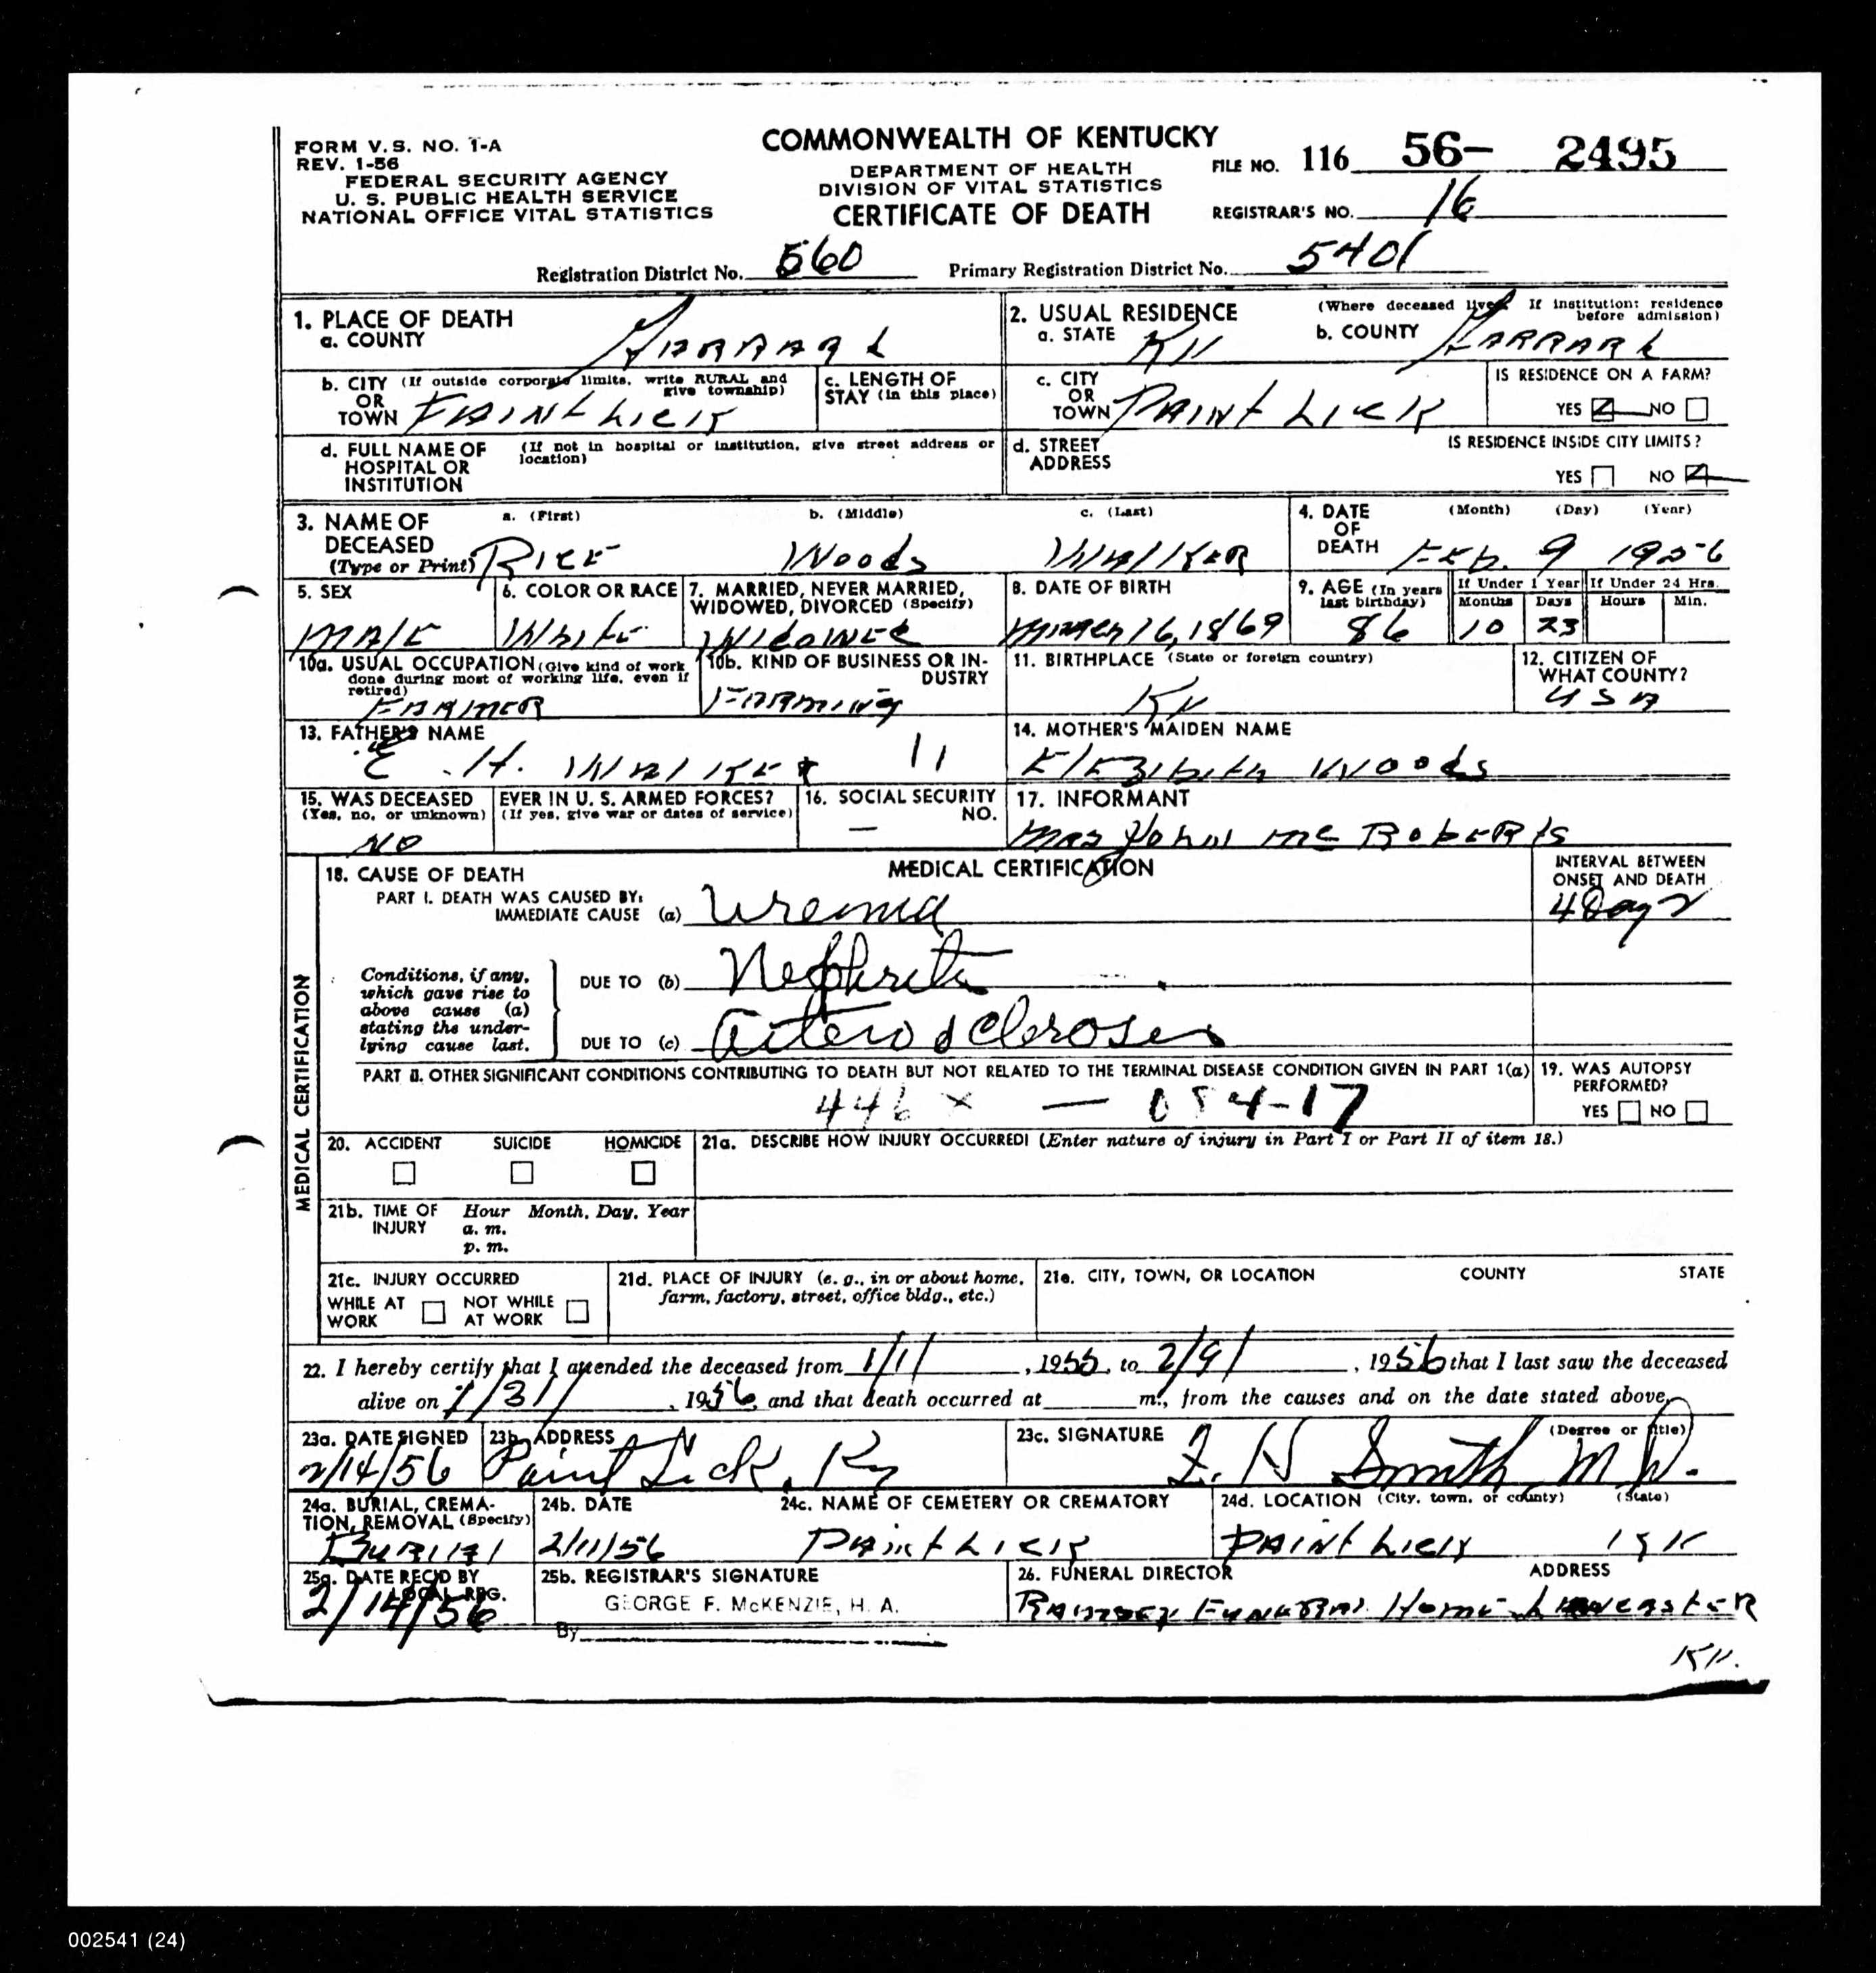 FORM V. S. NO. 1-A
REV. 1-56
FEDERAL SECURITY AGENCY
U. S. PUBLIC HEALTH SERVICE
NATIONAL OFFICE VITAL STATISTICS
COMMONWEALTH OF KENTUCKY
DEPARTMENT OF HEALTH
DIVISION OF VITAL STATISTICS
CERTIFICATE OF DEATH
FILE NO. 116 56- 2495
REGISTRAR'S NO. 16
Registration District No. 560 Primary Registration District No. 5401
1. PLACE OF DEATH
a. COUNTY Garrard
2. USUAL RESIDENCE (Where deceased lived. If institution: residence before admission)
a. STATE Ky b. COUNTY Garrard
b. CITY (If outside corporate limits, write RURAL and give township)
OR
TOWN Paint Lick
c. LENGTH OF STAY (in this place)
c. CITY
OR
TOWN Paint Lick
IS RESIDENCE ON A FARM?
YES NO
d. FULL NAME OF HOSPITAL OR INSTITUTION (If not in hospital or institution, give street address or location)
d. STREET ADDRESS
IS RESIDENCE INSIDE CITY LIMITS?
YES NO
3. NAME OF DECEASED (Type or Print)
a. (First) b. (Middle) c. (Last)
Rice Woods Walker
4. DATE OF DEATH (Month) (Day) (Year)
Feb. 9 1956
5. SEX
Male
6. COLOR OR RACE
White
7. MARRIED, NEVER MARRIED, WIDOWED, DIVORCED (Specify)
Widowed
8. DATE OF BIRTH
March 16, 1869
9. AGE (In years last birthday)
86
If Under 1 Year If Under 24 Hrs.
Months Days Hours Min.
10 23
10a. USUAL OCCUPATION (Give kind of work done during most of working life, even if retired)
Farmer
10b. KIND OF BUSINESS OR INDUSTRY
Farming
11. BIRTHPLACE (State or foreign country)
Ky
12. CITIZEN OF WHAT COUNTY?
USA
13. FATHER'S NAME
E. H. Walker 11
14. MOTHER'S MAIDEN NAME
Elezibeth Woods
15. WAS DECEASED EVER IN U. S. ARMED FORCES?
(Yes, no, or unknown) (If yes, give war or dates of service)
No
16. SOCIAL SECURITY NO.
—
17. INFORMANT
Mrs John Mc Roberts
MEDICAL CERTIFICATION
18. CAUSE OF DEATH
MEDICAL CERTIFICATION
INTERVAL BETWEEN ONSET AND DEATH
PART I. DEATH WAS CAUSED BY:
IMMEDIATE CAUSE (a) Uremia 4 Days
Conditions, if any, which gave rise to above cause (a) stating the underlying cause last.
DUE TO (b) Nephritis
DUE TO (c) Arterosclerosis
PART II. OTHER SIGNIFICANT CONDITIONS CONTRIBUTING TO DEATH BUT NOT RELATED TO THE TERMINAL DISEASE CONDITION GIVEN IN PART 1(a)
446 X —
19. WAS AUTOPSY PERFORMED?
YES NO
20. ACCIDENT SUICIDE HOMICIDE
21a. DESCRIBE HOW INJURY OCCURRED! (Enter nature of injury in Part I or Part II of item 18.)
21b. TIME OF INJURY Hour Month, Day, Year
a. m.
p. m.
21c. INJURY OCCURRED
WHILE AT WORK NOT WHILE AT WORK
21d. PLACE OF INJURY (e. g., in or about home, farm, factory, street, office bldg., etc.)
21e. CITY, TOWN, OR LOCATION COUNTY STATE
22. I hereby certify that I attended the deceased from 1/1/, 1955, to 2/9/, 1956 that I last saw the deceased
alive on 1/31/, 1956, and that death occurred at m., from the causes and on the date stated above.
23a. DATE SIGNED
2/14/56
23b. ADDRESS
Paint Lick, Ky
23c. SIGNATURE (Degree or title)
H Smith M D.
24a. BURIAL, CREMATION, REMOVAL (Specify)
Burial
24b. DATE
2/11/56
24c. NAME OF CEMETERY OR CREMATORY
Paint Lick
24d. LOCATION (City, town, or county) (State)
Paint Lick Ky
25a. DATE REC'D BY LOCAL REG.
2/14/56
25b. REGISTRAR'S SIGNATURE
GEORGE F. McKENZIE, H. A.
By
26. FUNERAL DIRECTOR ADDRESS
Ramsey Funeral Home Lancaster
Ky.
002541 (24)